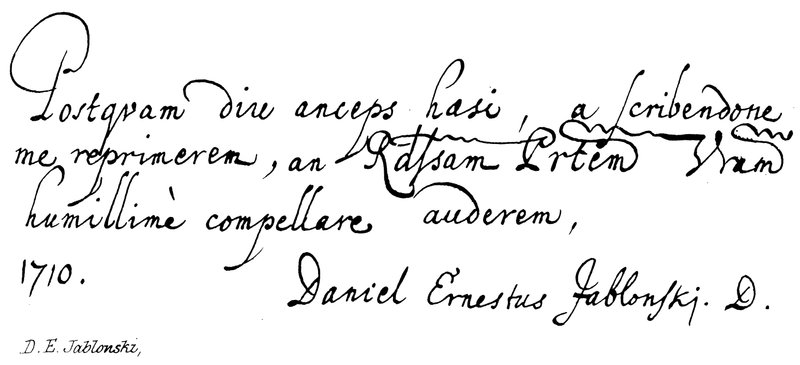 Postqvam diu anceps hæsi, a scribendone
me reprimerem, an Rdssam Prtem Vram
humillimè compellare auderem,
1710.
Daniel Ernestus Jablonskj. D.
D. E. Jablonski,